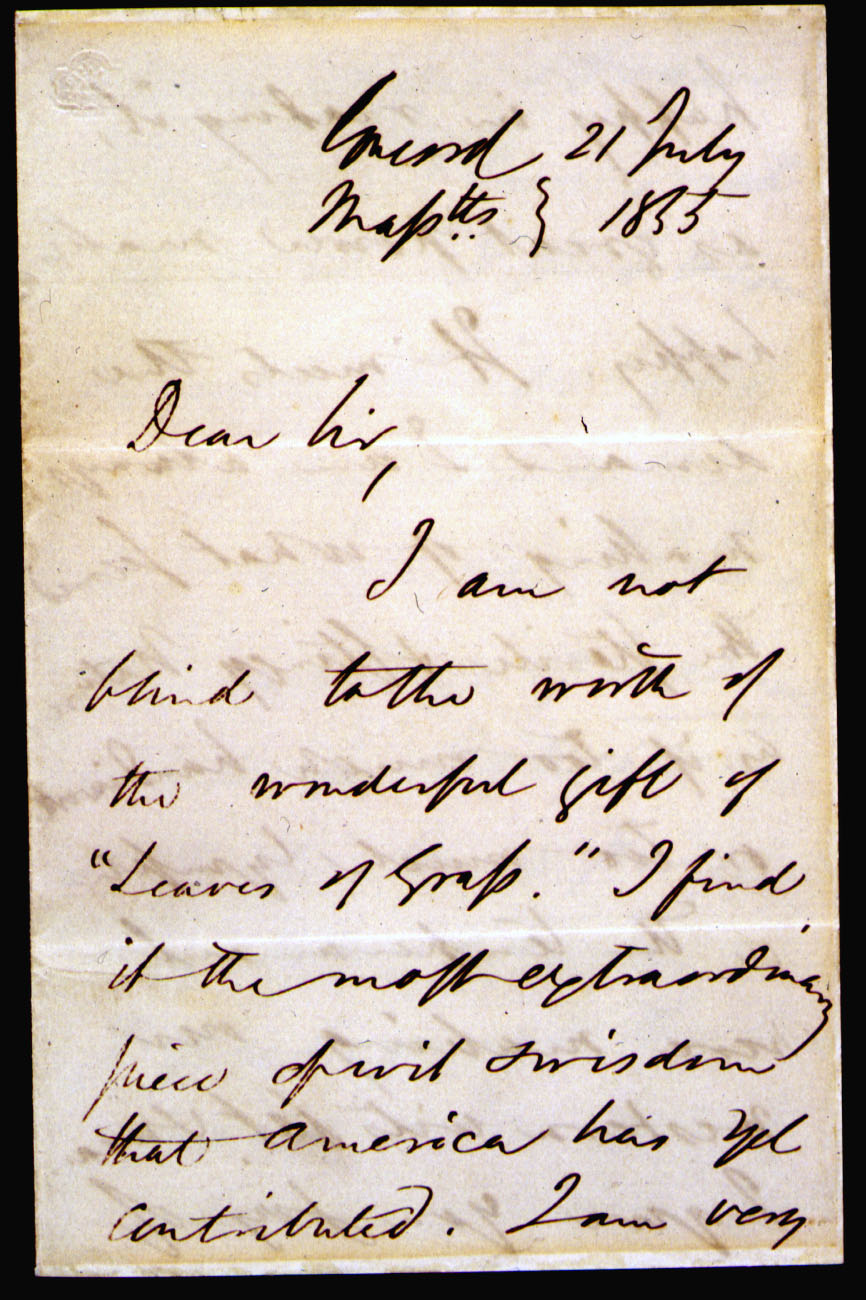 Concord 21 July
Masstts.. } 1855
Dear Sir,
I am not
blind to the worth of
the wonderful gift of
"Leaves of Grass." I find
it the most extraordinary
piece of wit & wisdom
that America has yet
contributed. I am very